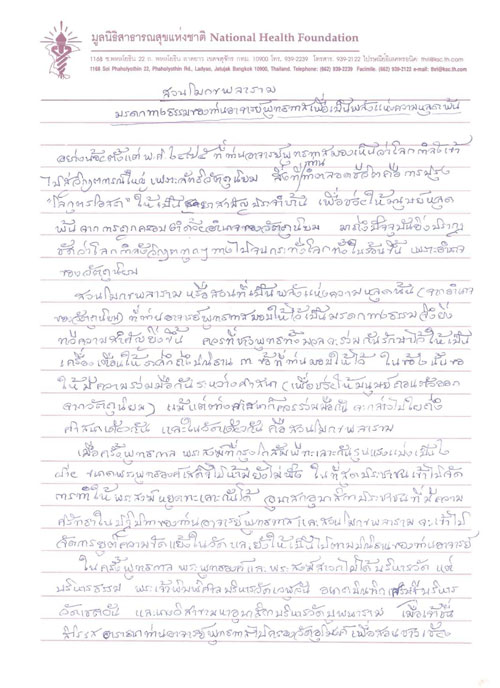 มูลนิธิสาธารณสุขแห่งชาติ National Health Foundation
1168 ซ.พหลโยธิน 22 ถ. พหลโยธิน ลาดยาว เขตจตุจักร กทม. 10900 โทร. 939-2239 โทรสาร. 939-2122
1168 Soi Phaholyothin 22, Phaholyothin Rd., Ladyao, Jatujak Bangkok 10900, Thailand. Telephone: (662) 939-2239 Facsimile. (662) 939-2122
สวนโมกขพลาราม
มรดกทางธรรมของท่านอาจารย์พุทธทาสเพื่อเป็นพลังแห่งความหลุดพ้น
อย่างน้อยตั้งแต่ พ.ศ. ๒๔๗๕ ที่ท่านอาจารย์พุทธทาสมองเห็นว่าโลกกำลังเข้า
ไปสู่วิกฤตการณ์ใหญ่ เพราะลัทธิวัตถุนิยม สิ่งที่ท่านทำตลอดชีวิตคือการมุ่ง
ให้เป็น เพื่อช่วยให้มนุษย์หลุด
พ้นจากการถูกครอบงำด้วยอำนาจของวัตถุนิยม
ชัดว่าโลกกำลังวิกฤตทุกๆทาง เพราะอำนาจ
ของวัตถุนิยม
สวนโมกขพลาราม หรือสวนที่เป็นพลังแห่งความหลุดพ้น (จากอำนาจ
ของวัตถุนิยม) ที่ท่านอาจารย์พุทธทาสมอบไว้ให้เป็นมรดกทางธรรม
ที่มีความสำคัญยิ่งนี้ ควรที่ชาวพุทธทั้งมวลจะร่วมกันรักษาไว้ให้เป็น
เครื่องเตือนให้ระลึกถึงปณิธาน ๓ ข้อที่ท่านมอบไว้ให้ ในข้อหนึ่งขอ
ให้มีความร่วมมือกันระหว่างศาสนา (เพื่อช่วยให้มนุษย์ถอนตัวออก
จากวัตถุนิยม) แม้แต่ต่างศาสนาก็ควรร่วมมือกัน จะกล่าวไปใยถึง
ศาสนาเดียวกัน และในวัดเดียวกัน คือสวนโมกขพลาราม
เมื่อครั้งพุทธกาล พระสงฆ์ที่กรุงโกสัมพีทะเลาะกันรุนแรงแบ่งเป็น
ฝ่าย ขนาดพระพุทธองค์เสด็จไปห้ามยังไม่ฟัง ในที่สุดประชาชนเข้าไปจัด
การทำให้พระสงฆ์หยุดทะเลาะกันได้ อุบาสกอุบาสิกาประชาชนที่มีความ
ศรัทธาในปฏิปทาของท่านอาจารย์พุทธทาสและสวนโมกขพลารามจะเข้าไป
จัดการยุติความขัดแย้งในวัด และยังให้เป็นไปตามปณิธานของท่านอาจารย์
ในครั้งพุทธกาล พระพุทธองค์และพระสงฆ์สาวกไม่ได้บริหารวัด แต่
บริหารธรรม พระเจ้าพิมพิสารบริหารวัดเวฬุวัน อนาถบิณฑิกเศรษฐีบริหาร
วัดเชตวัน และนางวิสาขามหาอุบาสิกาบริหารวัดบุพพาราม เมื่อเจ้าชื่น
สิโรรส อาราธนาท่านอาจารย์พุทธทาสไปครองวัดอุโมงค์ เพื่อสอนชาวเชียง